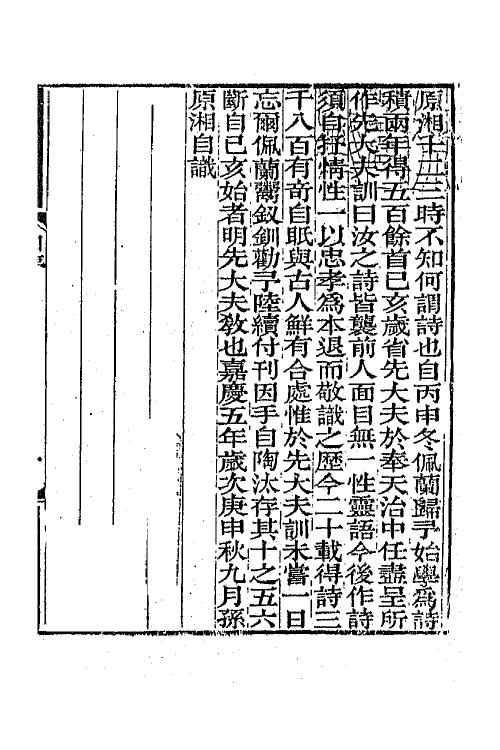 原湘十二三時不知何謂詩也自丙申冬佩蘭歸予始學爲詩
積兩年得五百餘首己亥歲省先大夫於奉天治中任盡呈所
作先大夫訓曰汝之詩皆襲前人面目無一性靈語今後作詩
須自抒情性一以忠孝爲本退而敬識之歴今二十載得詩三
千八百有奇自眂與古人鮮有合處惟於先大夫訓未嘗一日
忘爾佩蘭鬻釵釧勸予陸續付刊因手自陶汰存其十之五六
斷自己亥始者明先大夫敎也嘉慶五年歲次庚申秋九月孫
原湘自識